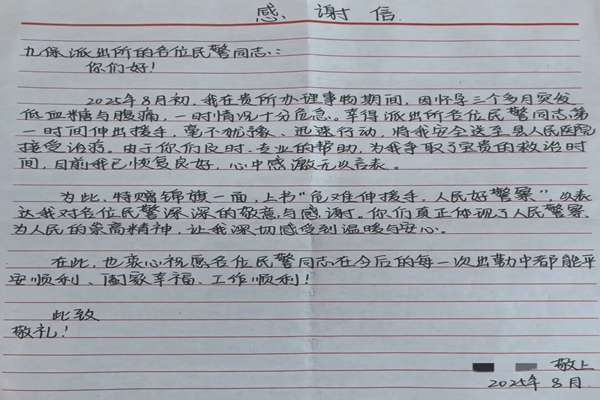 感谢信
九保派出所的各位民警同志：
你们好！
2025年8月初，我在贵所办理事物期间，因怀孕三个多月突发
低血糖与腹痛，一时情况十分危急。幸得派出所各位民警同志第
一时间伸出援手，毫不犹豫、迅速行动，将我安全送至县人民医院
接受治疗。由于你们及时、专业的帮助，为我争取了宝贵的救治时
间，目前我已恢复良好，心中感激无以言表。
为此，特赠锦旗一面，上书“危难伸援手，人民好警察”，以表
达我对各位民警深深的敬意与感谢。你们真正体现了人民警察
为人民的崇高精神，让我深切感受到温暖与安心。
在此，也衷心祝愿各位民警同志在今后的每一次出勤中都能平
安顺利、阖家幸福、工作顺利！
此致
敬礼！
敬上
2025年8月